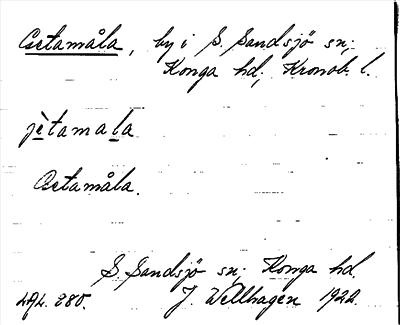 Getamåla, by i S. Sandsjö sn;
Konga hd; Kronob. l.
jètamala
Getamåla.
S. Sandsjö sn; Konga hd.
J. Wellhagen 1922.